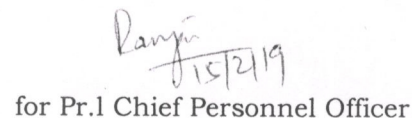 15/2/19
for Pr.l Chief Personnel Officer